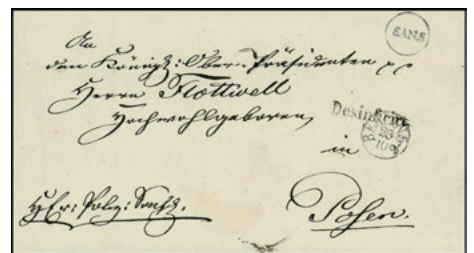 SAN.S
An
den Königl: Ober-Präsidenten
Herrn Flottwell
Hochwohlgeboren,
Desinficirt
in
23
10
Posen.